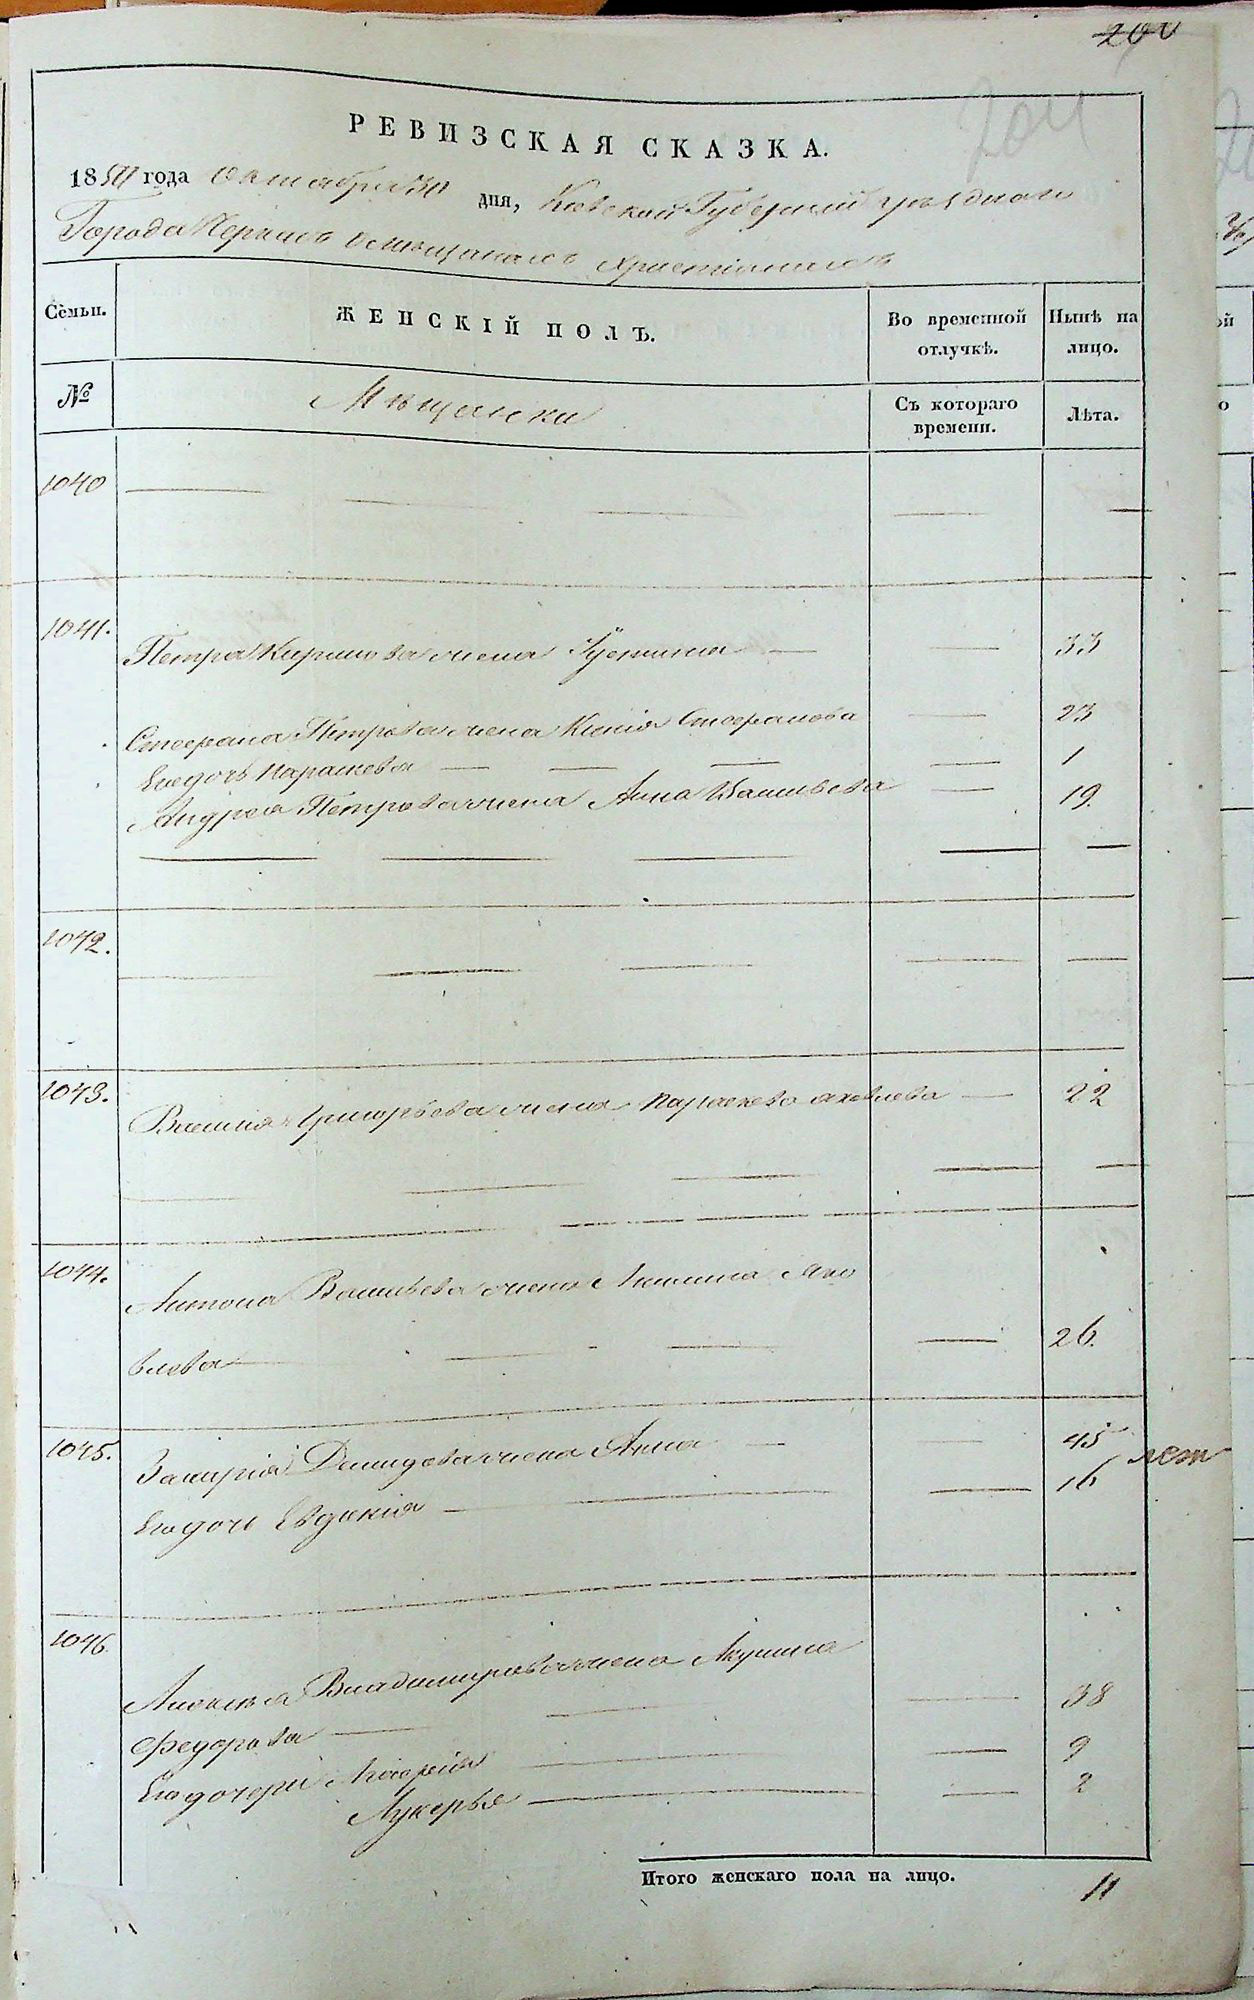 200
204
РЕВИЗСКАЯ СКАЗКА.
1850 года Октября 30 дня, Киевской Губернии уѣзднаго
Города Черкасъ о мѣщанахъ христіанахъ
Семьи. ЖЕНСКІЙ ПОЛЪ. Во временной отлучкѣ. Нынѣ на лицо.
№ Мѣщанки Съ котораго времени. Лѣта.
1040
1041.
Петра Кирилова жена 33
Стефана Петрова жена Ксенія Стефанова 23
Его дочь Параскева 1
Андрея Петрова жена Анна Васильева 19.
1042.
1043.
Василія Григорьева жена Параскева Яковлева 22
1044.
Антона Васильева жена Акилина Яко
влева 26.
1045.
Захарія Демидова жена Анна 45
лет
Его дочь Евдокія 16
1046.
Алексѣя Владимирова жена Акулина
Федорова 38
Его дочери 9
Лукерья 2
Итого женскаго пола на лицо. 11